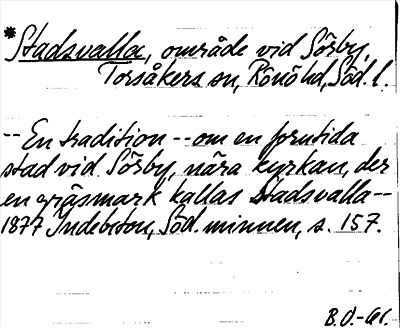 *Stadsvalla, område vid Sörby,
Torsåkers sn, Rönö hd, Söd. l.
-- En tradition -- om en forntida
stad vid Sörby, nära kyrkan, der
en gräsmark kallas Stadsvalla --
1877 Indebetou, Söd. minnen, s. 157.
B.O.-61.